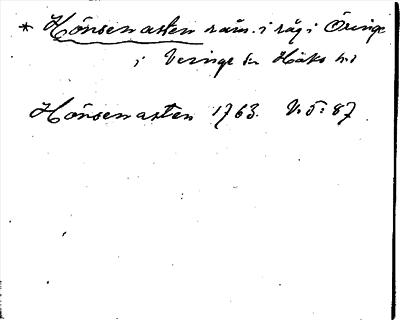 * Hönsenasten näm. i råg i Öringe
i Veinge sn Höks hd
Hönsenasten 1763. V. 5: 87